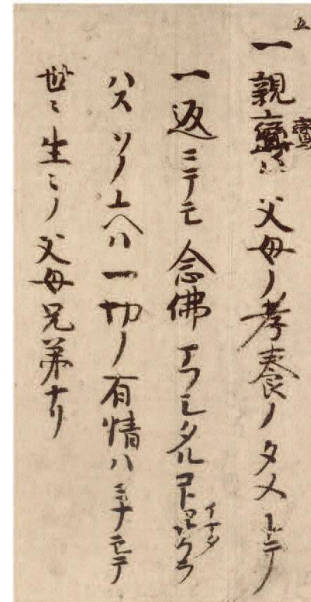 五
一親鸞ハ父母ノ孝養ノタメトテ
鸞
一返ニテモ念佛マフシタルコトイマタサフラ
ハスソノユヘハ一切ノ有情ハミナモテ
世ミ生ミノ父母兄弟ナリ